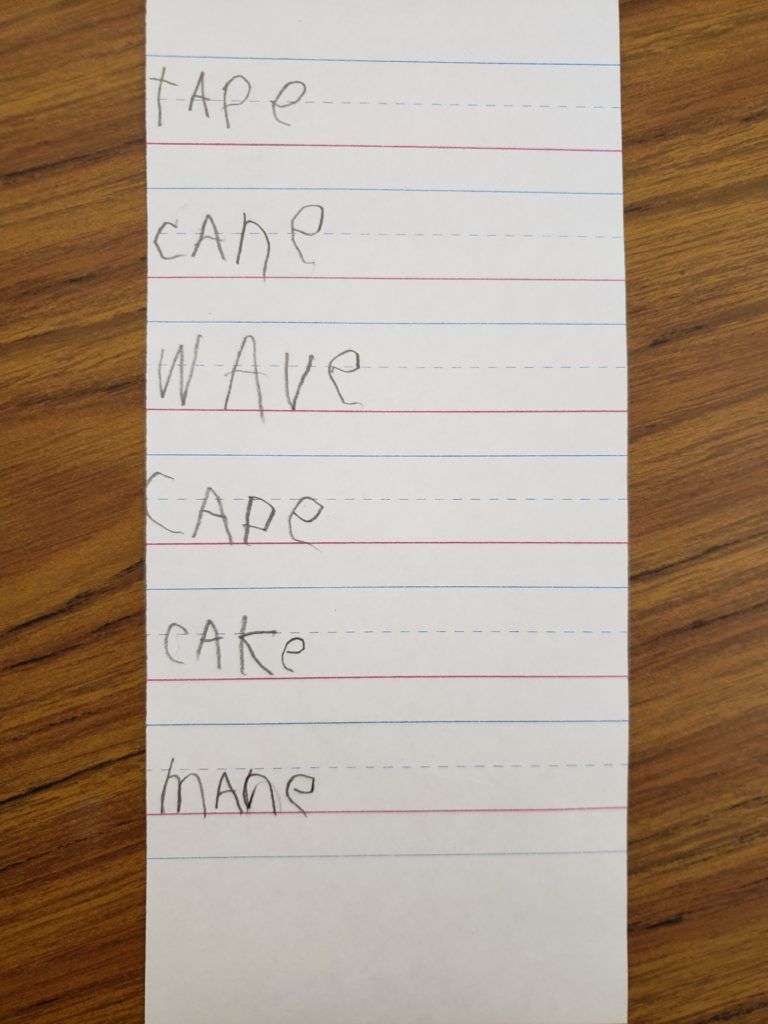 tAPe
cAne
wAve
CApe
cAke
mAne